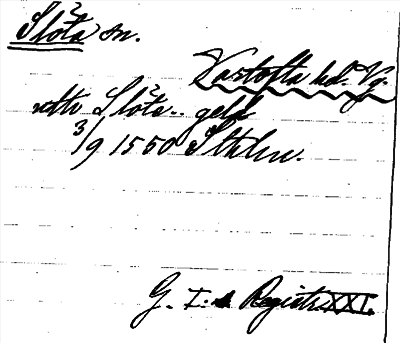 Slöta sn.
Vartofta hd. Vg.
utti Slöta.. geld
3/9 1550 Sthlm.
G. I:s Registr. XXI.